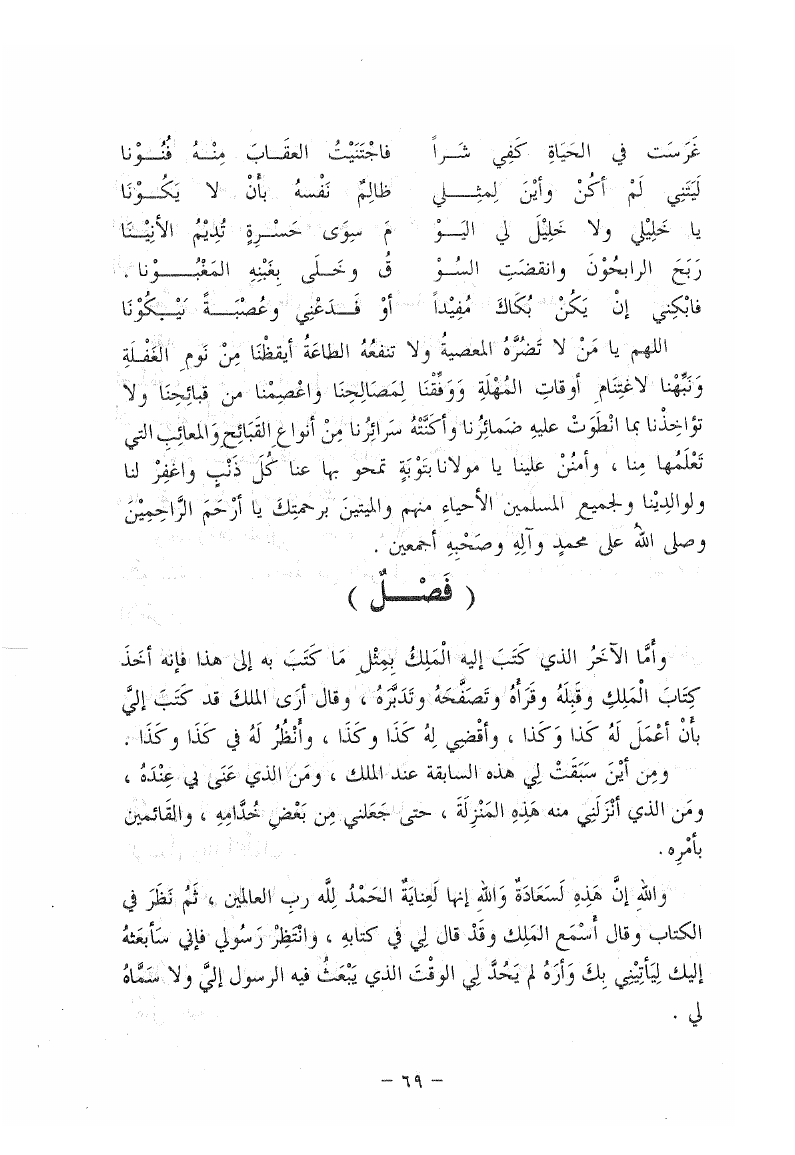 غَرَسَت في الحَيَاةِ كَفِي شَـراً فاجْتَنَيْتُ العقَـابَ مِنْـهُ فُنُـوْنا
لَيتَنِي لَمْ أكُنْ وأيْنَ لِمثِـلي ظالِمٌ نَفْسهُ بأنْ لا يَكُـوْنَا
يا خَلِيْلي ولا خَلِيْلَ لي اليَـوْ مَ سِوَى حَسْـرةٍ تُدِيْمُ الأنِيْـنَا
رَبَحَ الرابحُوْنَ وانقضَتِ السُـوْ قُ وخَـلَى بِغَبْنِهِ المَغْبُـوْنا .
فابْكِني إنْ يَكُنْ بُكَاكَ مُفِيْداً أوْ فَـدَعْنِي وعُصْبَـةً يَبْـكُوْنَا
اللهم يا مَنْ لا تَضُرُّهُ المعصيةُ ولا تنفعُهُ الطاعَةُ أيقظْنَا مِنْ نَومِ الغَفْلَةِ
وَنَبِّهْنا لاغتِنَامِ أوقاتِ المُهْلَةِ وَوَفِّقْنَا لِمَصَالِحِنَا واعْصِمْنا من قبائِحِنَا ولا
تؤاخِذْنا بما انْطَوَتْ عليهِ ضمائِرُنا وأكَنَّتْهُ سَرائِرُنا مِنْ أنواعِ القَبَائحِ وَالمعائِبِ التي
تَعْلَمُها مِنا ، وأمنُنْ علينا يا مولانا بتَوْبَةٍ تمحو بها عنا كُلَّ ذَنْبٍ واغفِرْ لنا
ولوالدِيْنا ولجميعِ المسلمين الأحياءِ منهم والميتينَ برحمتِكَ يا أرْحَمَ الرَّاحِمِيْنَ
وصلى اللهُ على محمدٍ وآلِهِ وصَحْبِهِ أجمعين .
( فَصْـلٌ )
وأمَّا الآخَرُ الذي كَتَبَ إليه الْمَلِكُ بِمِثْلِ مَا كَتَبَ به إلى هذا فإنه أخَذَ
كِتَابَ الْمَلِكِ وقَبلَهُ وقَرأهُ وتَصَفَّحَهُ وتَدَبَّرَهُ ، وقال أرَى الملكَ قد كَتَبَ إليَّ
بأنْ أعْمَلَ لَهُ كَذا وَكَذا ، وأقْضِي لِهُ كَذَا وكَذَا ، وأنْظُرُ لَهُ في كَذَا وكَذَا .
ومِن أيْنَ سَبَقَتْ لِي هذه السابقة عند الملك ، ومَن الذي عَنَى بي عِنْدَهُ ،
ومَن الذي أنْزَلَنِي منه هَذِهِ المَنْزِلَةَ ، حتى جَعَلني مِن بَعْضِ خُدَّامِهِ ، والقَائمين
بأمْرِه .
واللهِ إنَّ هَذِهِ لَسَعَادَةٌ وَاللهِ إنها لَعِنايَةٌ الحَمْدُ لِلّه ربِ العالمِين ، ثَمُ نَظَرَ في
الكتاب وقال أَسْمَع المَلِك وقَدْ قال لِي في كتابهِ ، وانْتَظِرْ رَسُولي فإني سَأبعَثهُ
إليك لِيَأتِيْنِي بِكَ وَأرَهُ لم يَحُدَّ لِي الوقْتَ الذي يَبْعَثُ فيه الرسول إليَّ ولا سَمَّاهُ
لي .
– ٦٩ –